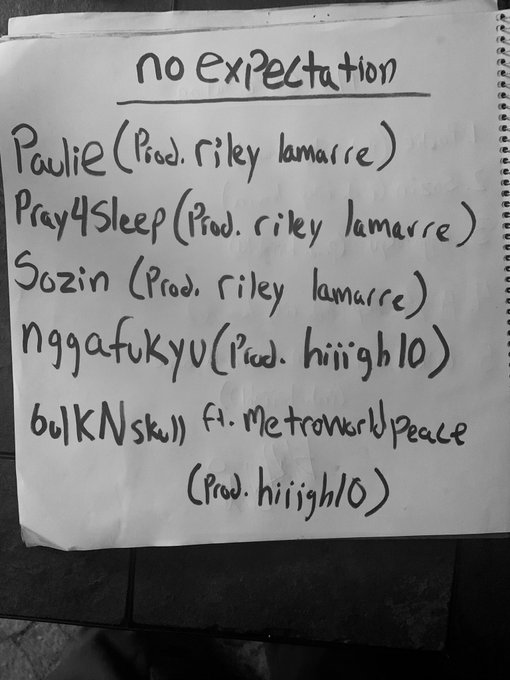 no expectation
Paulie (Prod. riley lamarre)
Pray4Sleep (Prod. riley lamarre)
Sozin (Prod. riley lamarre)
nggafukyu (Prod. hiiigh10)
bulKNskull ft. MetroWorldPeace
(Prod. hiiigh10)